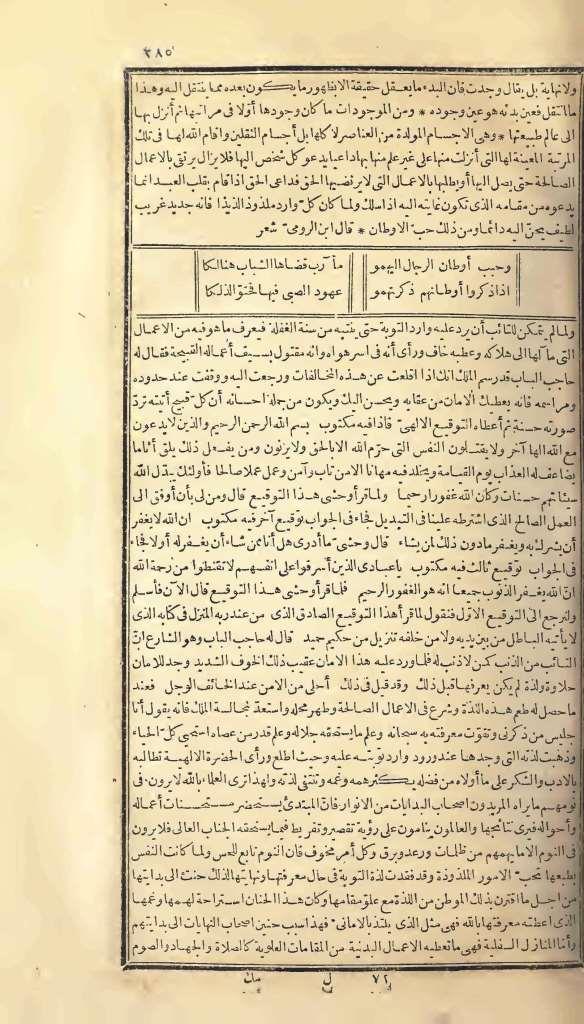 ٣٨٥
ولا نهاية بل يقال وجدت فان البدء ما يعقل حقيقة الا بظهور ما يكون بعده مما ينتقل اليه وهذا
ما انتقل فعين بدئه هو عين وجوده * ومن الموجودات ما كان وجودها أولا فى مراتبها ثم أنزل بها
الى عالم طبيعتها * وهى الاجسام المولدة من العناصر لا كلها بل أجسام الثقلين واقام الله لها فى تلك
المرتبة المعينة لها التى أنزلت منها على غير علم منها بها داعيا يدعو كل شخص اليها فلا يزال يرتقى بالاعمال
الصالحة حتى يصل اليها أو يطلبها بالاعمال التى لا يرتضيها الحق فداعى الحق اذا قام بقلب العبد انما
يدعوه من مقامه الذى تكون غايته اليه اذا سلك ولما كان كل وارد ملذوذ الذيذا فانه جديد غريب
لطيف يحنّ اليه دائما ومن ذلك حب الاوطان * قال ابن الرومى شعر
وحبب أوطان الرجال اليهمو مآرب قضاها الشباب هنالكا
اذا ذكروا أوطانهم ذكرتهمو عهود الصبى فيها فحنوا لذلكا
ولما لم يتمكن للتائب أن يرد عليه وارد التوبة حتى ينتبه من سنة الغفلة فيعرف ما هو فيه من الاعمال
التى مآلها الى هلاكه وعطبه خاف ورأى أنه فى اسر هواه وانه مقتول بسيف أعماله القبيحة فقال له
حاجب الباب قد رسم الملك انك اذا اقلعت عن هذه المخالفات ورجعت اليه ووقفت عند حدوده
ومراسمه فانه يعطيك الامان من عقابه ويحسن اليك ويكون من جملة احسانه أن كل قبيح أتيته تردّ
صورته حسنة ثم أعطاه التوقيع الالهىّ فاذا فيه مكتوب بسم الله الرحمن الرحيم والذين لا يدعون
مع الله الها آخر ولا يقتلون النفس التى حرّم الله الا بالحق ولا يزنون ومن يفعل ذلك يلق أثاما
يضاعف له العذاب يوم القيامة ويخلد فيه مهانا الا من تاب وآمن وعمل عملا صالحا فأولئك يبدّل الله
سيئاتهم حسنات وكان الله غفورا رحيما ولما قرأ وحشى هذا التوقيع قال ومن لى بأن أوفق الى
العمل الصالح الذى اشترطه علينا فى التبديل فجاء فى الجواب توقيع آخر فيه مكتوب ان الله لا يغفر
أن يشرك به ويغفر ما دون ذلك لمن يشاء قال وحشى ما أدرى هل أنا ممن شاء أن يغفر له أولا فجاء
فى الجواب توقيع ثالث فيه مكتوب يا عبادى الذين أسرفوا على انفسهم لا تقنطوا من رحمة الله
انّ الله يغفر الذنوب جميعا انه هو الغفور الرحيم فلما قرأ وحشى هذا التوقيع قال الآن فأسلم
ولنرجع الى التوقيع الاوّل فنقول لما قرأ هذا التوقيع الصادق الذى من عند ربه المنزل فى كتابه الذى
لا يأتيه الباطل من بين يديه ولا من خلفه تنزيل من حكيم حميد قال له حاجب الباب وهو الشارع انّ
التائب من الذنب كمن لا ذنب له فلما ورد عليه هذا الامان عقيب ذلك الخوف الشديد وجد للامان
حلاوة ولذة لم يكن يعرفها قبل ذلك وقد قيل فى ذلك أحلى من الامن عند الخائف الوجل فعند
ما حصل له طعم هذه اللذة وشرع فى الاعمال الصالحة وطهر محله واستعدّ لمجالسة الملك فانه يقول أنا
جليس من ذكرنى وتقوّت معرفته به سبحانه وعلم ما يستحقه جلاله وعلم قدر من عصاه استحيى كل الحياء
وذهبت لذته التى وجدها عند ورود وارد توبته عليه وحيث اطلع ورأى الحضرة الالهية تطالبه
بالادب والشكر على ما أولاه من فضله يكثر همه وغمه وتنتفى لذته ولهذا ترى العلماء بالله لا يرون فى
نومهم ما يراه المريدون اصحاب البدايات من الانوار فانّ المبتدئ يستحضر مستحسنات أعماله
وأحواله فيرى نتائجها والعالمون ينامون على رؤية تقصير وتفريط فيما يستحقه الجناب العالى فلا يرون
فى النوم الا ما يهمهم من ظلمات ورعد وبرق وكل أمر مخوف فان النوم تابع للحس ولما كانت النفس
بطبعها تحب الامور الملذوذة وقد فقدت لذة التوبة فى حال معرفتها ونهايتها لذلك حنت الى بدايتها
من اجل ما اقترن بذلك الموطن من اللذة مع علوّ مقامها وكان هذا الحنان استراحة لهمها وغمها
الذى اعطته معرفتها بالله فهى مثل الذى يلتذ بالامانى فهذا سبب حنين اصحاب النهايات الى بدايتهم
وأما المنازل السفلية فهى ما تعطيه الاعمال البدنية من المقامات العلوية كالصلاة والجهاد والصوم
٧٢ ل مك